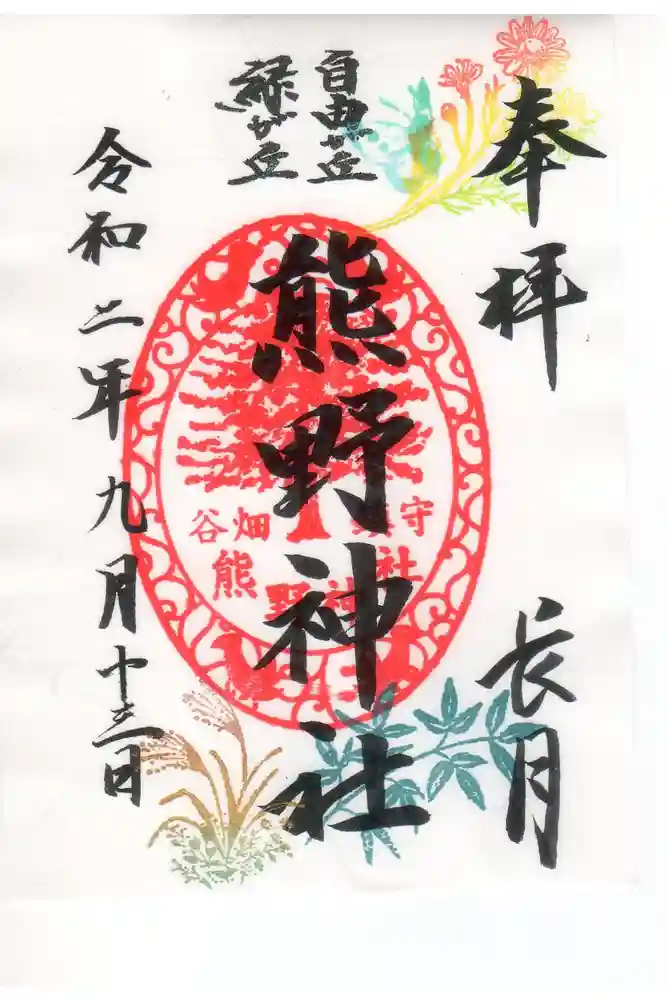 奉拝
長月
自由が丘
緑が丘
熊野神社
谷畑 鎮守
熊野神社
令和二年九月十三日